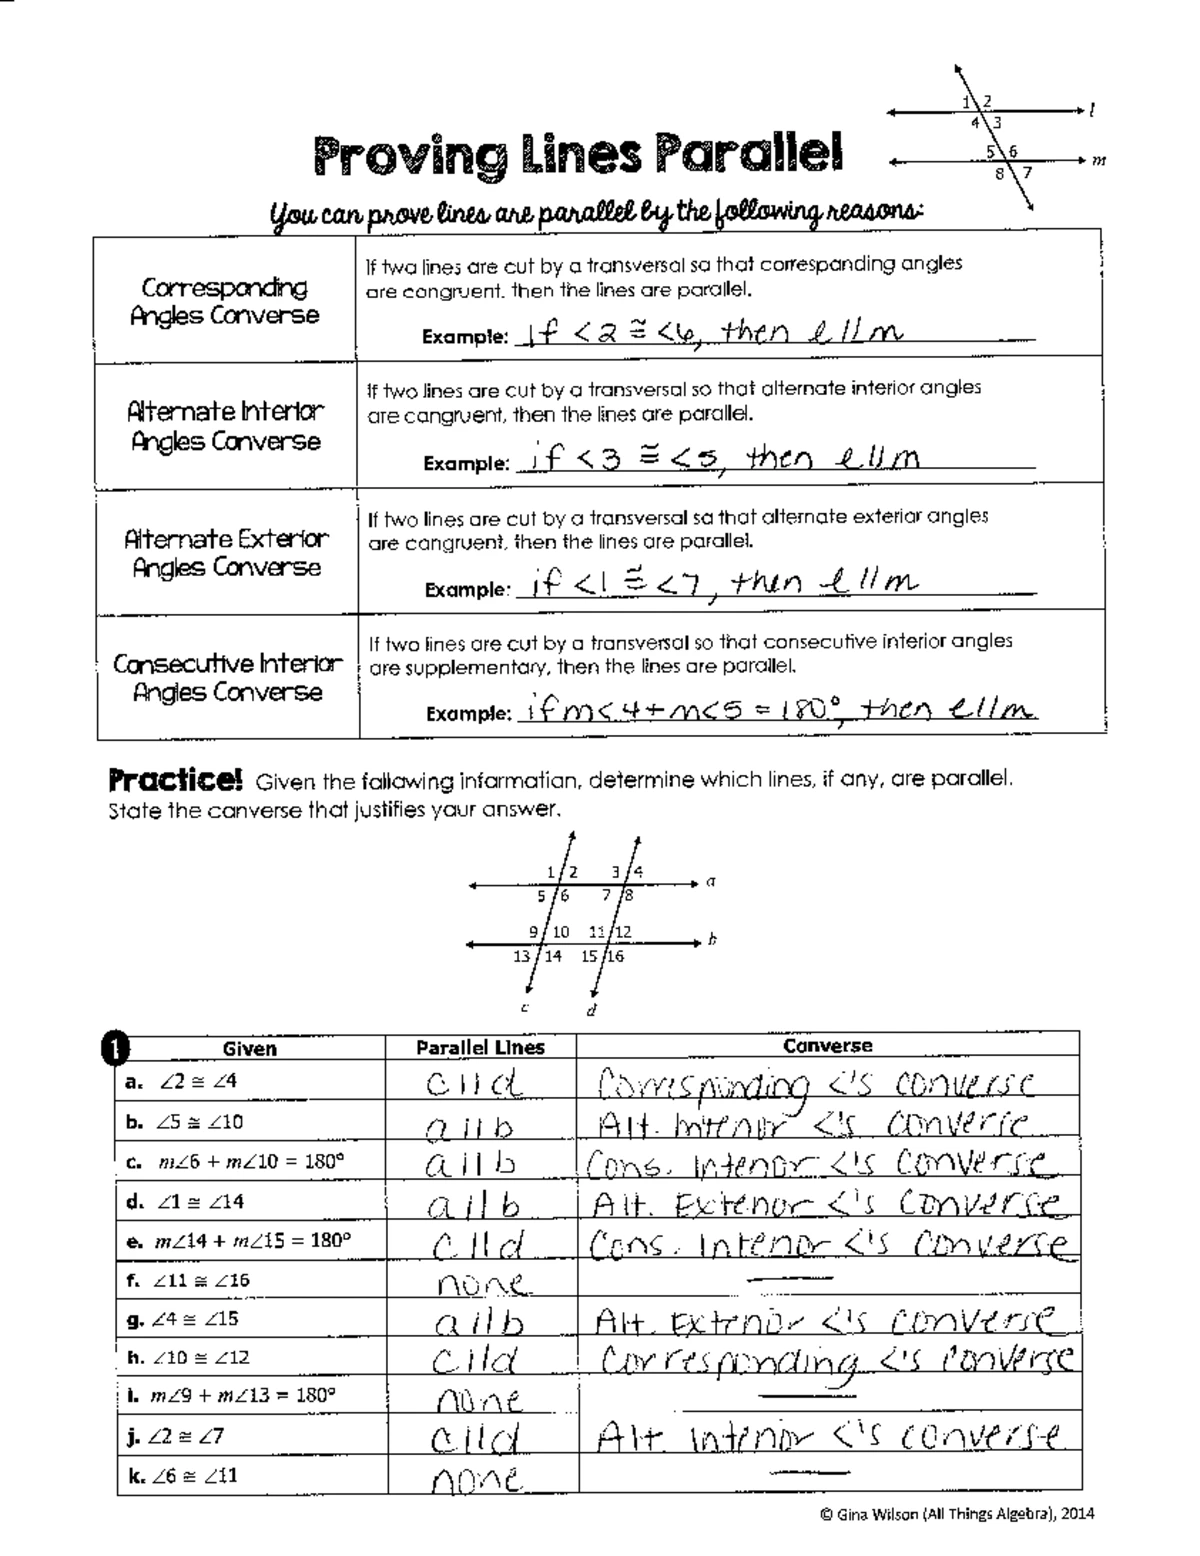 1 2
l
4 3
5 6
m
8 7
Proving Lines Parallel
You can prove lines are parallel by the following reasons:
Corresponding
Angles Converse
If two lines are cut by a transversal so that corresponding angles
are congruent, then the lines are parallel.
Example: If <2 ≅ <6, then l || m
Alternate Interior
Angles Converse
If two lines are cut by a transversal so that alternate interior angles
are congruent, then the lines are parallel.
Example: if <3 ≅ <5, then l || m
Alternate Exterior
Angles Converse
If two lines are cut by a transversal so that alternate exterior angles
are congruent, then the lines are parallel.
Example: if <1 ≅ <7, then l || m
Consecutive Interior
Angles Converse
If two lines are cut by a transversal so that consecutive interior angles
are supplementary, then the lines are parallel.
Example: if m<4 + m<5 = 180°, then l || m
Practice! Given the following information, determine which lines, if any, are parallel.
State the converse that justifies your answer.
1 2 3 4
a
5 6 7 8
9 10 11 12
b
13 14 15 16
c d
1 Given Parallel Lines Converse
a. ∠2 ≅ ∠4 c || d Corresponding <'s converse
b. ∠5 ≅ ∠10 a || b Alt. Interior <'s converse
c. m∠6 + m∠10 = 180° a || b Cons. Interior <'s converse
d. ∠1 ≅ ∠14 a || b Alt. Exterior <'s converse
e. m∠14 + m∠15 = 180° c || d Cons. Interior <'s converse
f. ∠11 ≅ ∠16 none —
g. ∠4 ≅ ∠15 a || b Alt. Exterior <'s converse
h. ∠10 ≅ ∠12 c || d Corresponding <'s converse
i. m∠9 + m∠13 = 180° none —
j. ∠2 ≅ ∠7 c || d Alt. Interior <'s converse
k. ∠6 ≅ ∠11 none —
© Gina Wilson (All Things Algebra), 2014